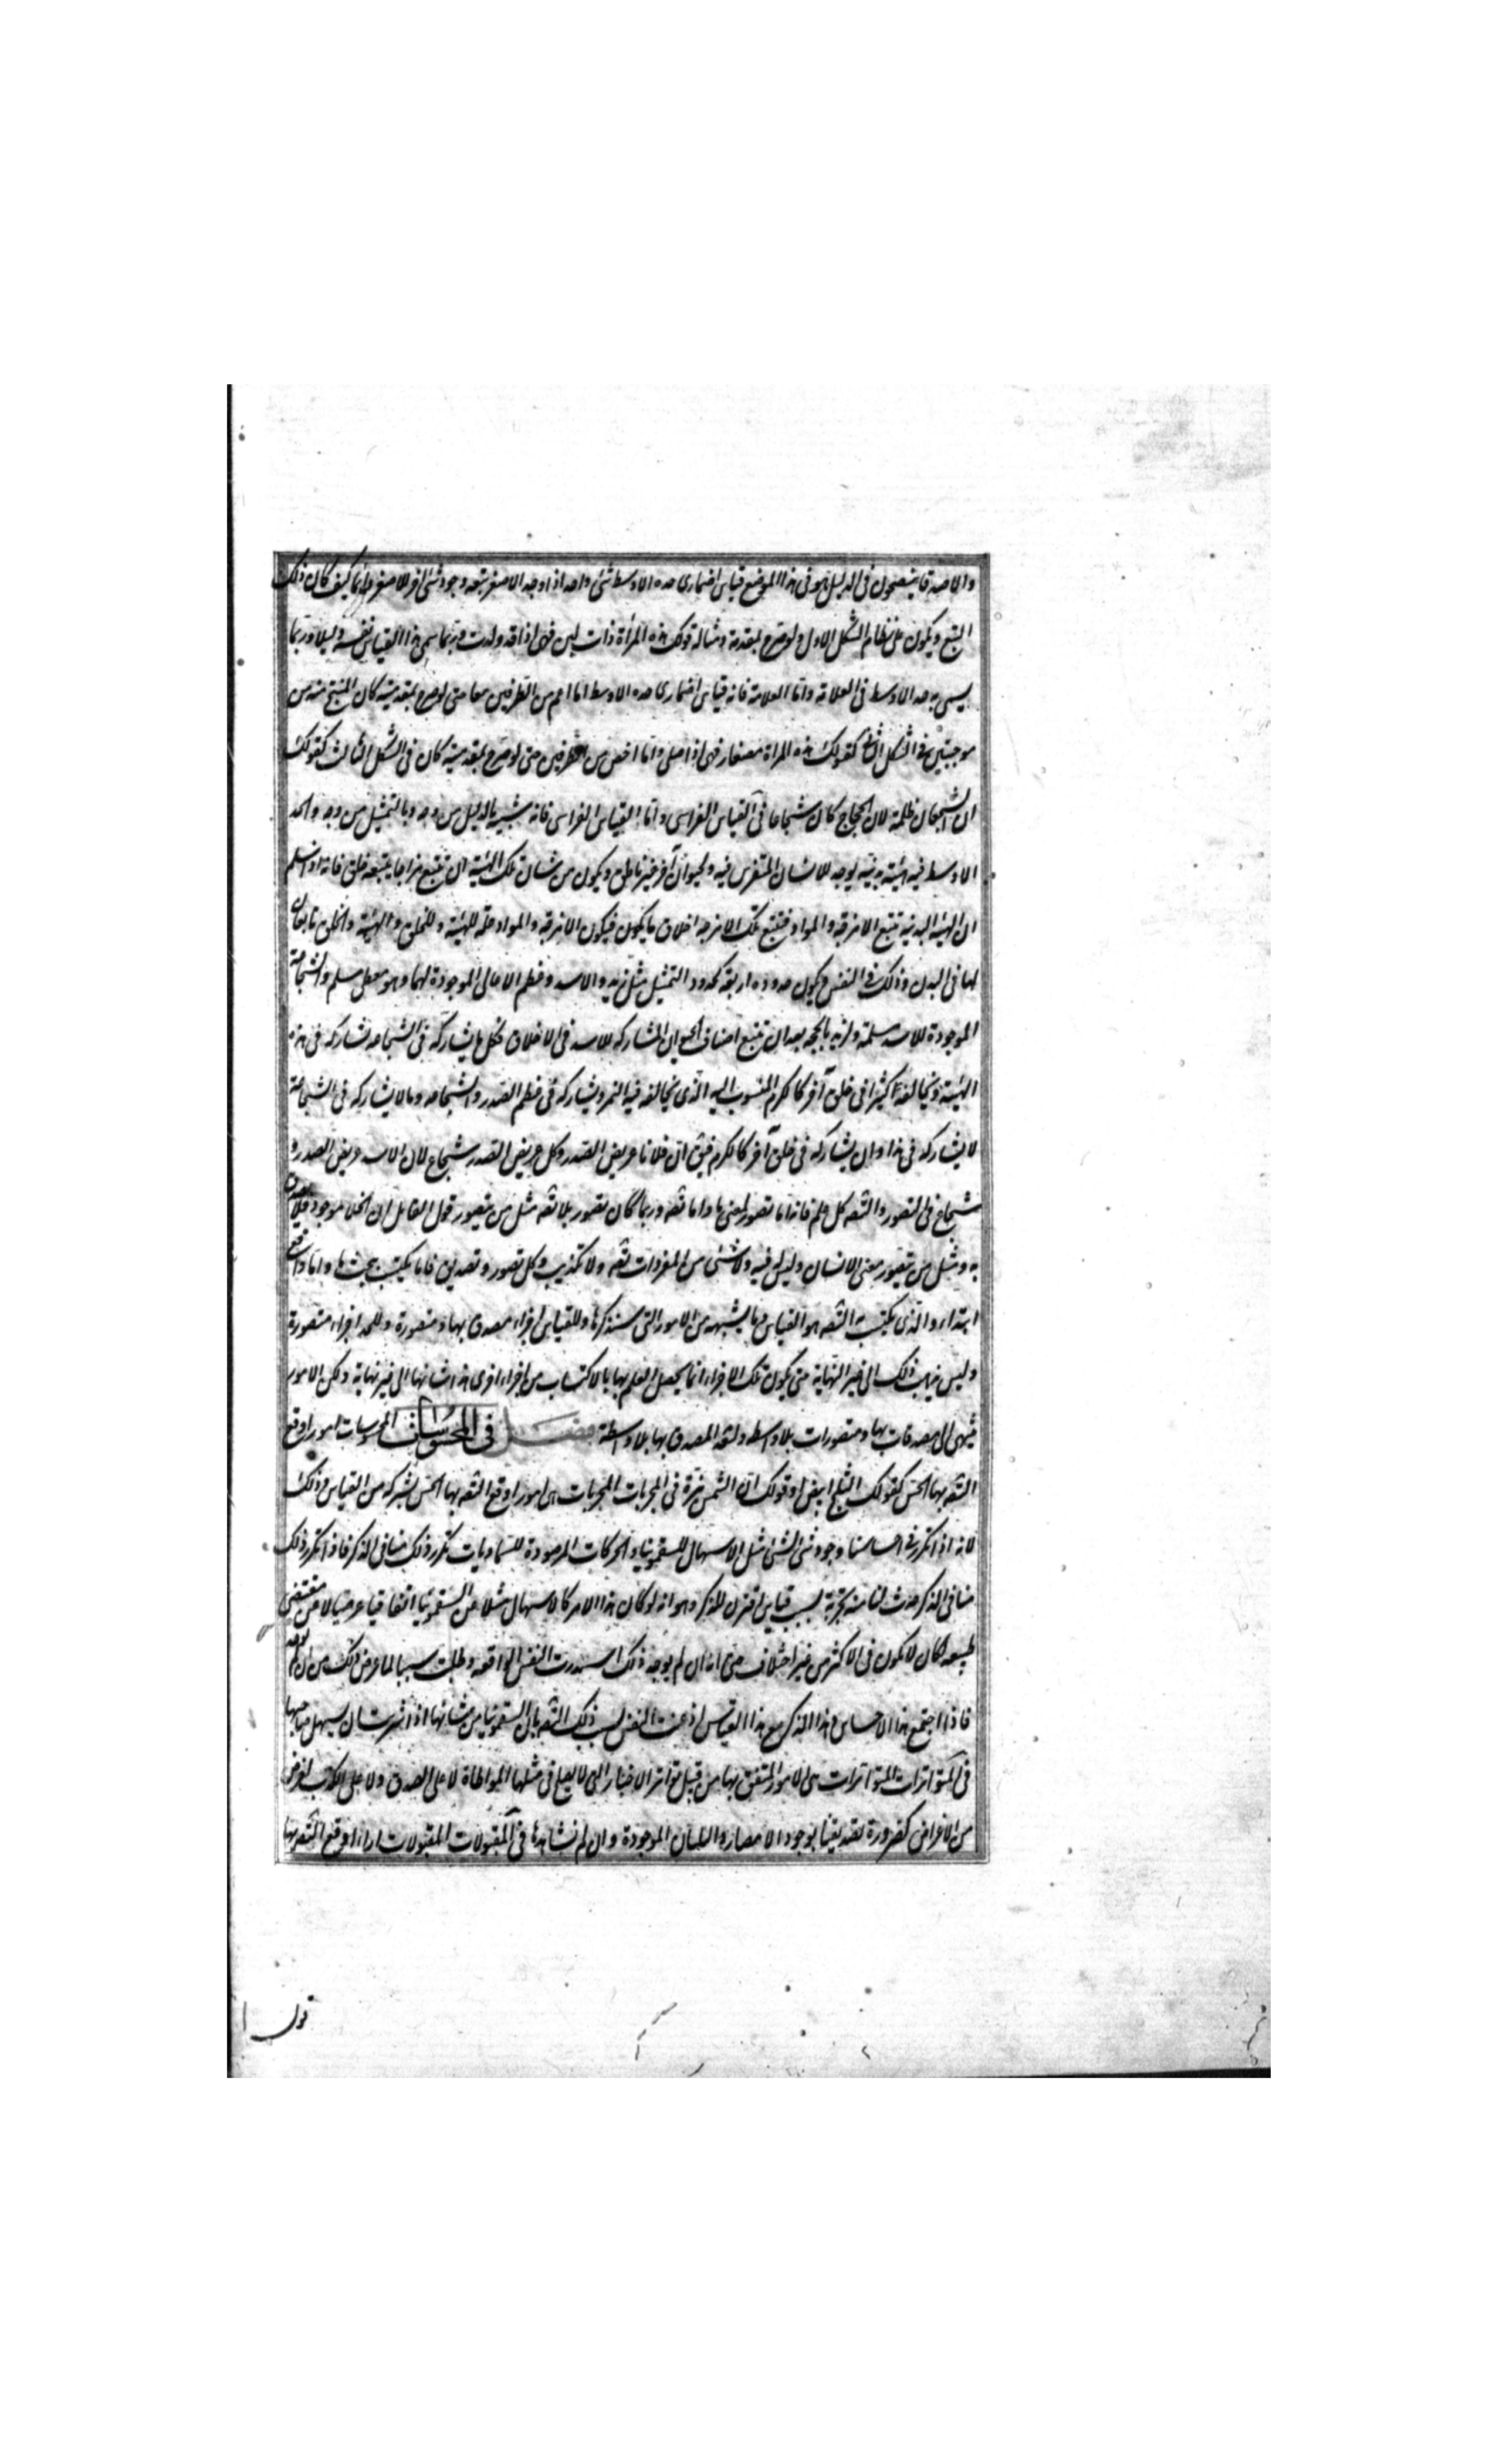 والاصدقا ينصحون في الدليل هو في هذا الموضع قياس اضماري حده الاوسط شئ واحد اذا وجد للاصغر تبعه وجود شئ اخر للاصغر دايما كيف كان ذلك
التبع ويكون على نظام الشكل الاول لو صرح بمقدمة ومثاله قولك هذه المرأة ذات لبن فهى اذا قد ولدت وربما سمى هذا القياس نفسه دليلا وربما
يسمى به حد الاوسط في العلامة واما العلامة فانه قياس اضماري حده الاوسط اما اعم من الطرفين معا حتى لو صرح بمقدمتيه كان المنتج منه من
موجبتين في الشكل الثاني كقولك هذه المرأة مصفار فهى اذا حبلى واما اخص من الطرفين حتى لو صرح بمقدمتيه كان في الشكل الثالث كقولك
ان الشجعان ظلمة لان الحجاج كان شجاعا في القياس الفراسى واما القياس الفراسى فانه شبيه بالدليل من وجه وبالتمثيل من وجه والحد
الاوسط فيه هيئة بدنية يوجد للانسان المتفرس فيه ولحيوان آخر غير ناطق ويكون من شان تلك الهيئة ان تتبع مزاجا يتبعه خلق فانه اذا سلم
ان الهيئة البدنية تتبع الامزجة والمواد فتتبع تلك الامزجة اخلاق ما يكون فيكون الامزجة والمواد علة للهيئة وللخلق والهيئة والخلق تابعان
لها في البدن وذلك في النفس ويكون حدوده اربعة كحدود التمثيل مثل زيد والاسد وعظم الاعالى الموجودة لهما وهو معطى مسلم والشجاعة
الموجودة للاسد مسلمة ولزيد بالحجة بعد ان تتبع اصناف الحيوان المشاركة للاسد في الاخلاق فكل ما يشاركه في الشجاعة تشاركه في هذه
الهيئة ويخالفه كثيرا في خلق آخر كالكرم المنسوب اليه الذى يخالفه فيه النمر ويشاركه في عظم الصدر والشجاعة وما لا يشاركه في الشجاعة
لا يشاركه في هذا وان يشاركه في خلق آخر كالكرم فيق ان فلانا عريض الصدر وكل عريض الصدر شجاع لان الاسد عريض الصدر و
شجاع في التصور والتصد كل علم فانه اما تصور لمعنى ما واما تصد وربما كان تصور بلا تصد مثل من يتصور قول القايل ان الخلا موجود فلا يصدق
به ومثل من يتصور معنى الانسان وليس له فيه ولا شئ من المفردات تصد ولا تكذيب وكل تصور وتصديق فاما يكتسب ببحث ما واما واقع
ابتداء والذى يكتسب به التصد هو القياس وما يشبهه من الامور التى سنذكرها وللقياس اجزاء مصدق بها ومتصورة وللحد اجزاء متصورة
وليس يذهب ذلك الى غير النهاية حتى يكون تلك الاجزاء انما يحصل العلم بها بالاكتساب من اجزاء اخرى هذا شانها الى غير نهاية ولكن الامور
تنتهى الى مصدقات بها ومتصورات بلا واسطة ولنعد المصدق بها بلا واسطة فصل في المحسوسات المحسوسات امور اوقع
التصد بها الحس كقولك الثلج ابيض او قولك ان الشمس نيرة في المجربات المجربات هى امور اوقع التصد بها الحس بشركة من القياس وذلك
لانه اذا تكرر في احساسنا وجود شئ لشئ مثل الاسهال للسقمونيا والحركات المرصودة للسماويات تكرر ذلك منا في الذكر فاذا تكرر ذلك
منا في الذكر حدث لنا منه تجربة بسبب قياس اقترن للذكر وهو انه لو كان هذا الامر كالاسهال مثلا عن السقمونيا اتفاقيا عرضيا لا عن مقتضى
طبيعة لكان لا يكون في الاكثر من غير اختلاف حتى انه ان لم يوجد ذلك استندرت النفس الواقعة وطلبت سببا لما عرض ذلك من ان لم يوجد
فاذا اجتمع هذا الاحساس وهذا الذكر مع هذا القياس اذعنت النفس بسبب ذلك التصد بان السقمونيا من شانها اذا شربت ان يسهل صاحبها
في المتواترات المتواترات هى الامور المتفق بها من قبل تواتر الاخبار التى لا يصلح في مثلها المواطاة لا على الصدق ولا على الكذب لغرض
من الاغراض كضرورة تصديقنا بوجود الامصار والبلدان الموجودة وان لم نشاهدها في المقبولات المقبولات اراء اوقع التصد بها
قول